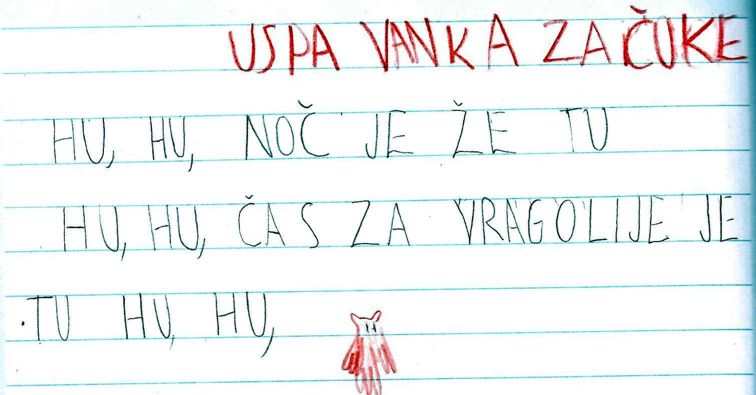 USPAVANKA ZA ČUKE
HU, HU, NOČ JE ŽE TU
HU, HU, ČAS ZA VRAGOLIJE JE
.TU HU, HU,